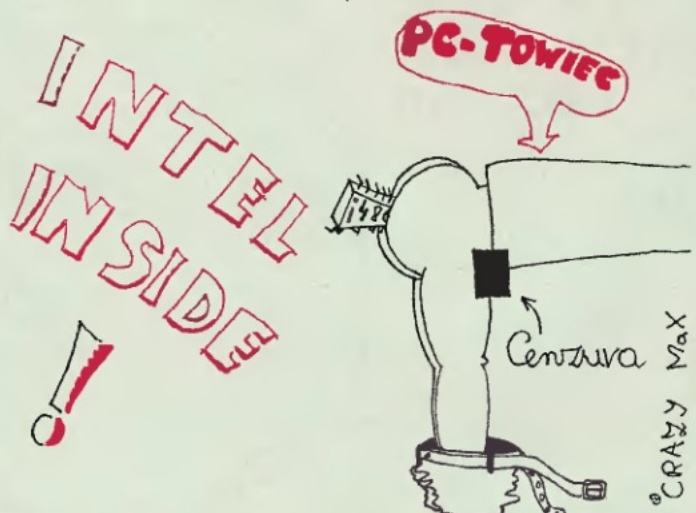 INTEL
INSIDE
!
PC-TOWIEC
i486
Cenzura
©CRAZY MaX